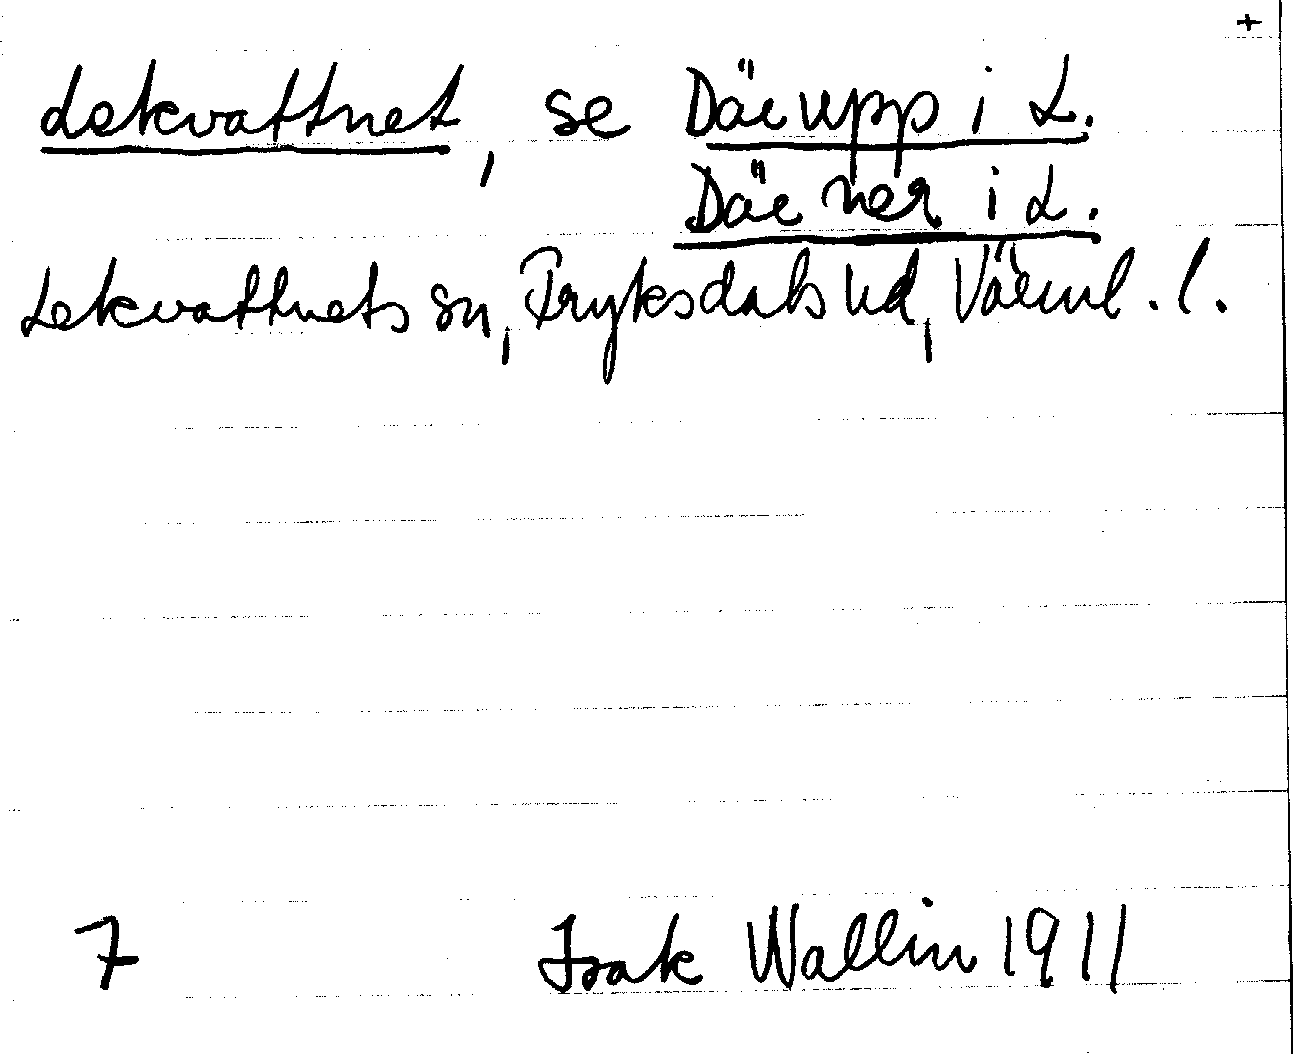 +
Lekvattnet, se Där upp i L.
Där ner i L.
Lekvattnets sn, Fryksdals hd, Värml. l.
7 Isak Wallin 1911